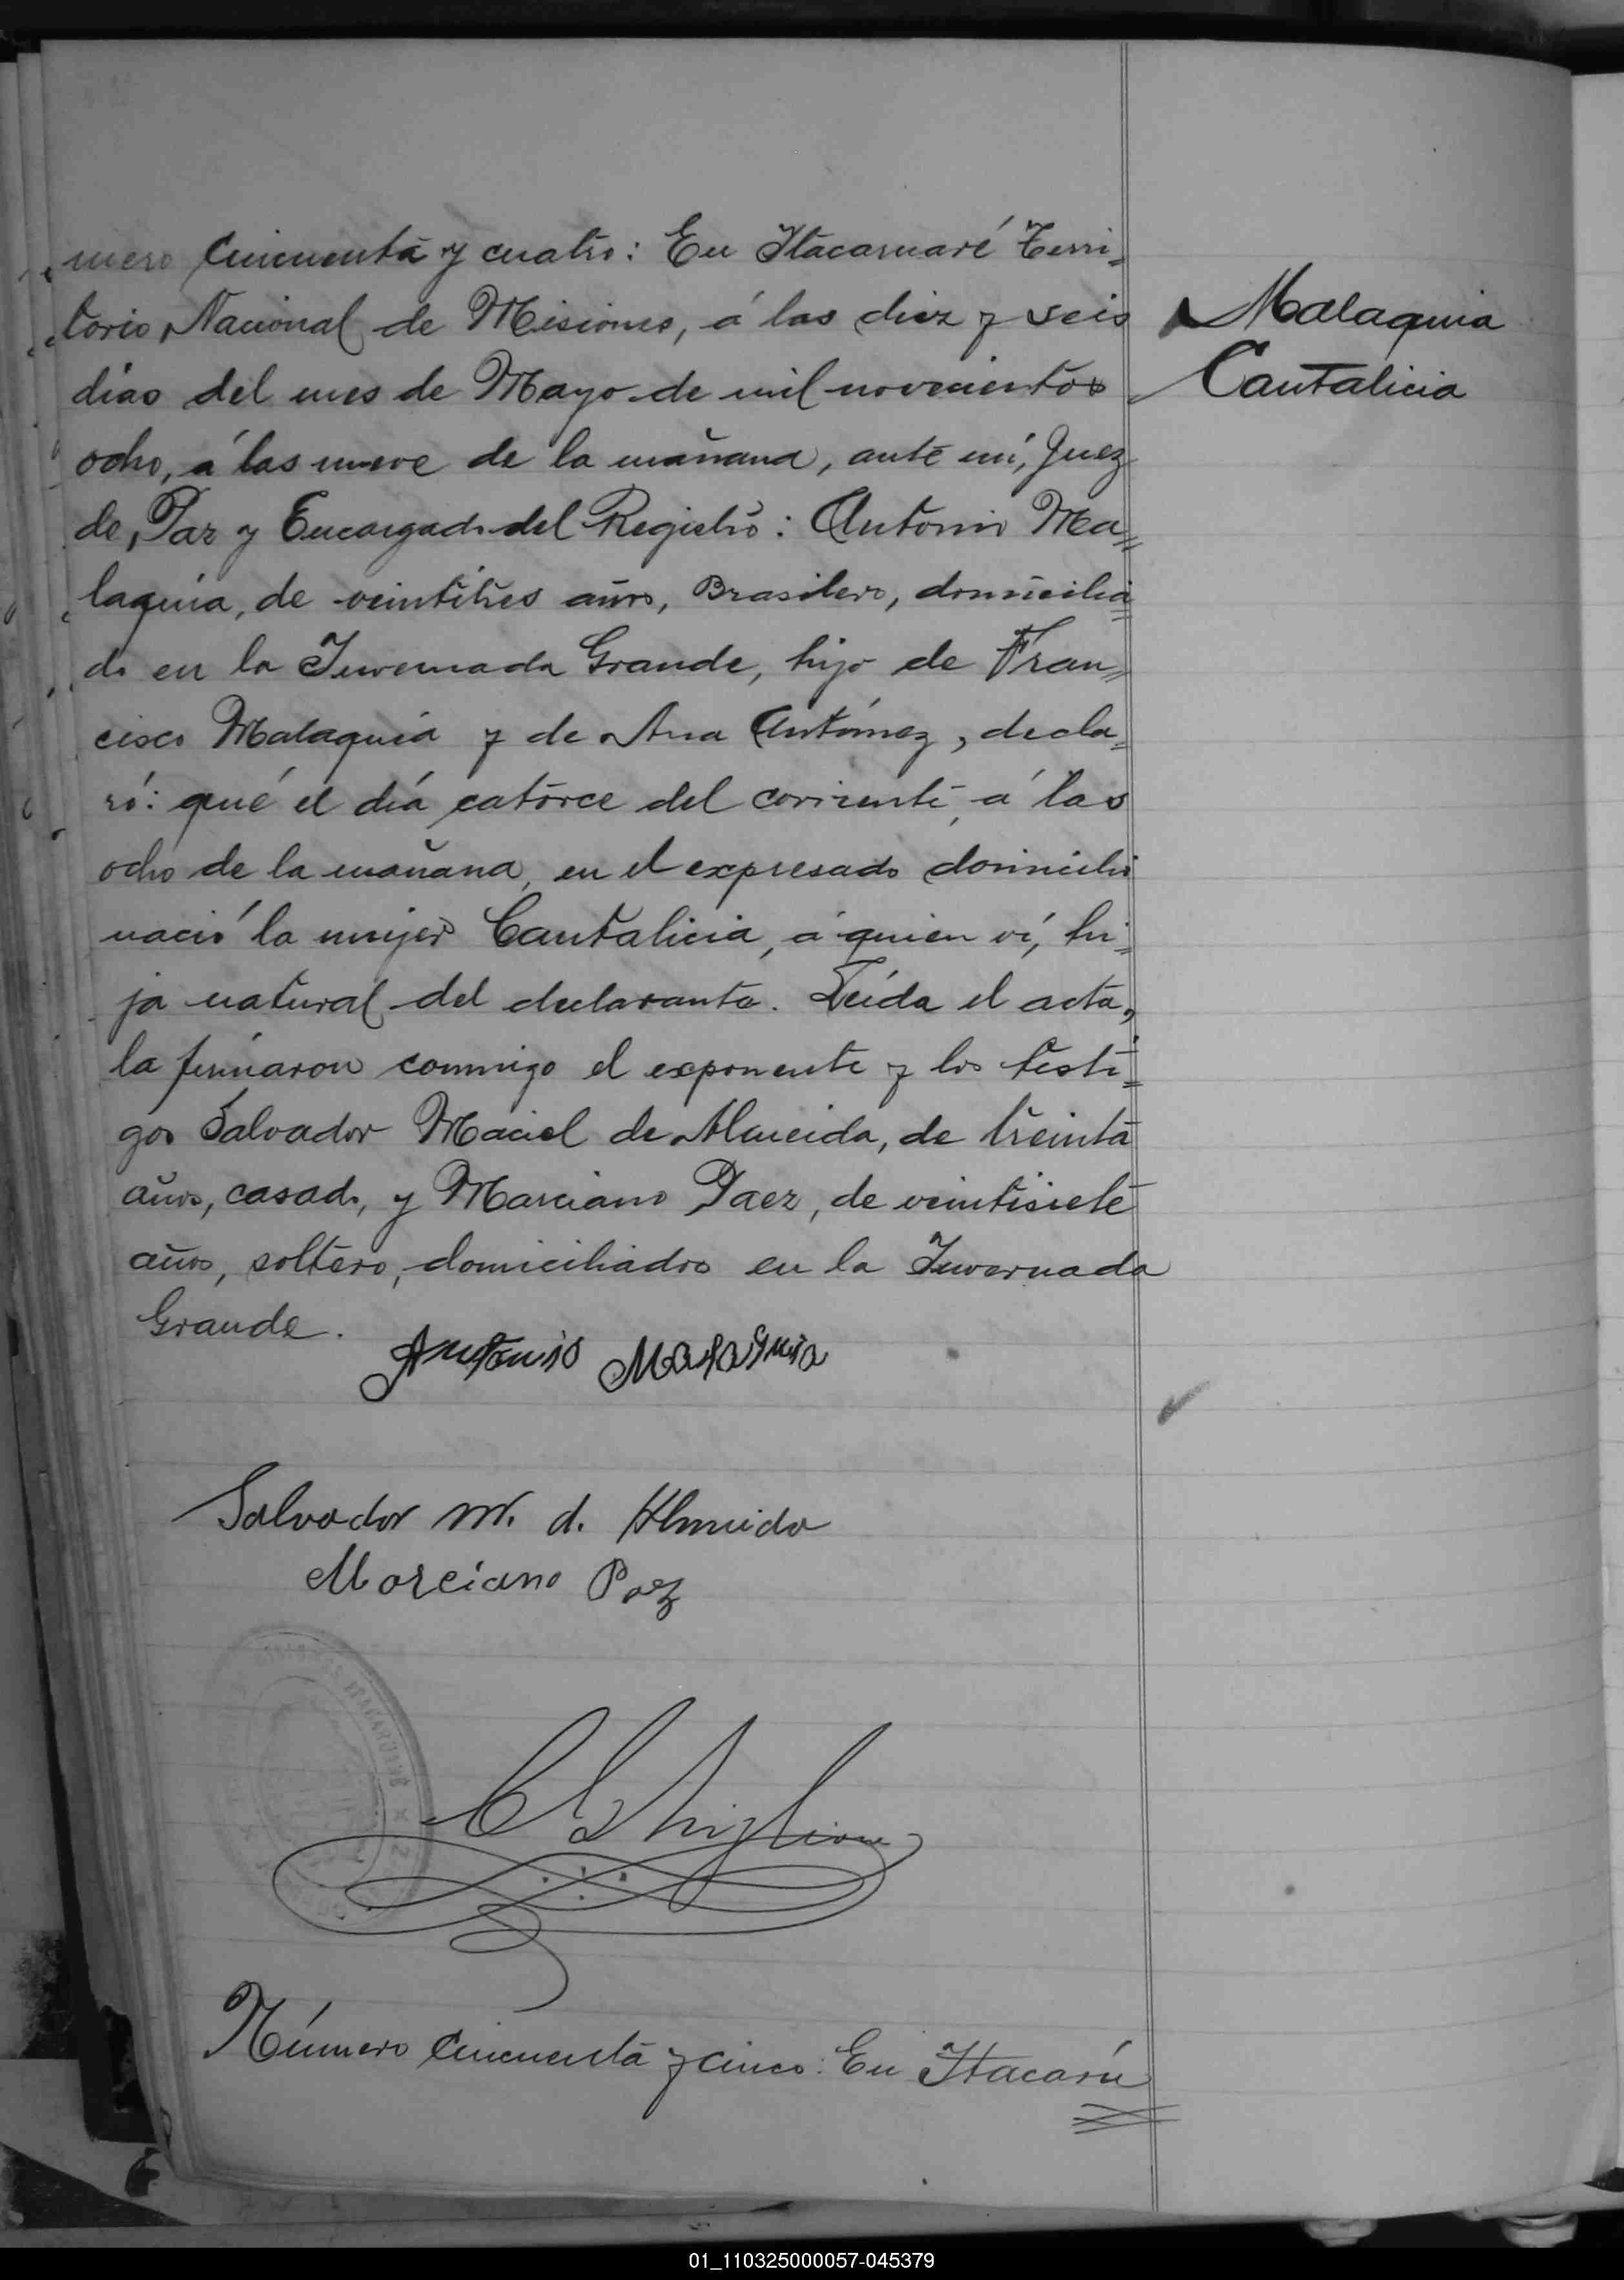 mero Cincuenta y cuatro: En Itacaruaré Terri=
torio Nacional de Misiones, á las diez y seis
días del mes de Mayo de mil novecientos
ocho, á las nueve de la mañana, ante mí, Juez
de Paz y Encargado del Registro: Antonio Ma=
laquia, de veintitres años, Brasilero, domicilia=
do en la Invernada Grande, hijo de Fran=
cisco Malaquia y de Ana Antónez, decla=
ró: qué el día catorce del corriente, á las
ocho de la mañana, en el expresado domicilio
nació la mujer Cantalicia, á quien ví, hi=
ja natural del declarante. Leída el acta,
la firmaron conmigo el exponente y los testi=
gos Salvador Maciel de Almeida, de treinta
años, casado, y Marciano Paez, de veintisiete
años, soltero, domiciliados en la Invernada
Grande.
Malaquia
Cantalicia
Antonio Malaquia
Salvador M. d. Almeida
Marciano Paez
ITACARUARÉ
Número Cincuenta y cinco: En Itacarú
01_110325000057-045379